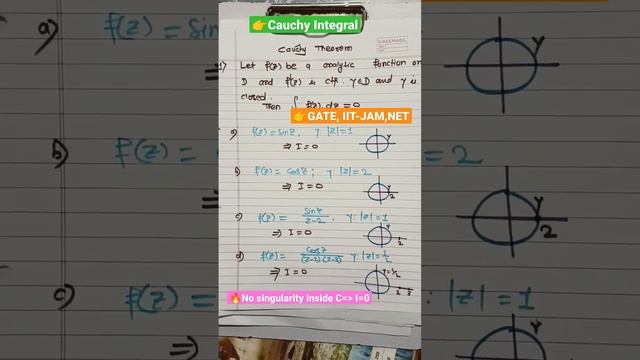 👉Cauchy Integral
Cauchy Theorem
1) Let f(z) be a analytic function on
D and f'(z) is cts. γ⊂D and γ is
closed.
Then ∫ f(z). dz = 0
👉GATE, IIT-JAM,NET
a) f(z) = sinz, γ: |z|=1
⇒ I = 0
γ
b) f(z) = cosz; γ: |z|=2
⇒ I = 0
γ
2
c) f(z) = sinz/(z-2), γ: |z|=1
⇒ I = 0
γ
2
d) f(z) = cosz/((z-2)(z-3)) γ: |z|=1/2
⇒ I = 0
γ=1/2
2 3
🔥No singularity inside C=> I=0
a) f(z) = sin
γ
b) f(z) =
= 2
γ
2
c) f(z) =
: |z| = 1
γ